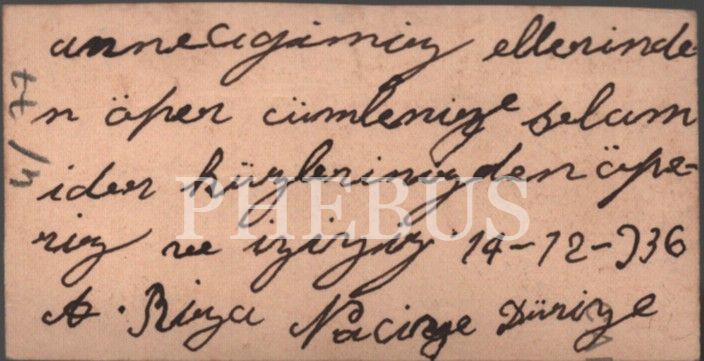 annecigimiz ellerinde
n öper cümlenize selam
ider hüzlerinizden öpe-
riz ve 14-12-936
A. Riza Naciye Düriye
PHEBUS